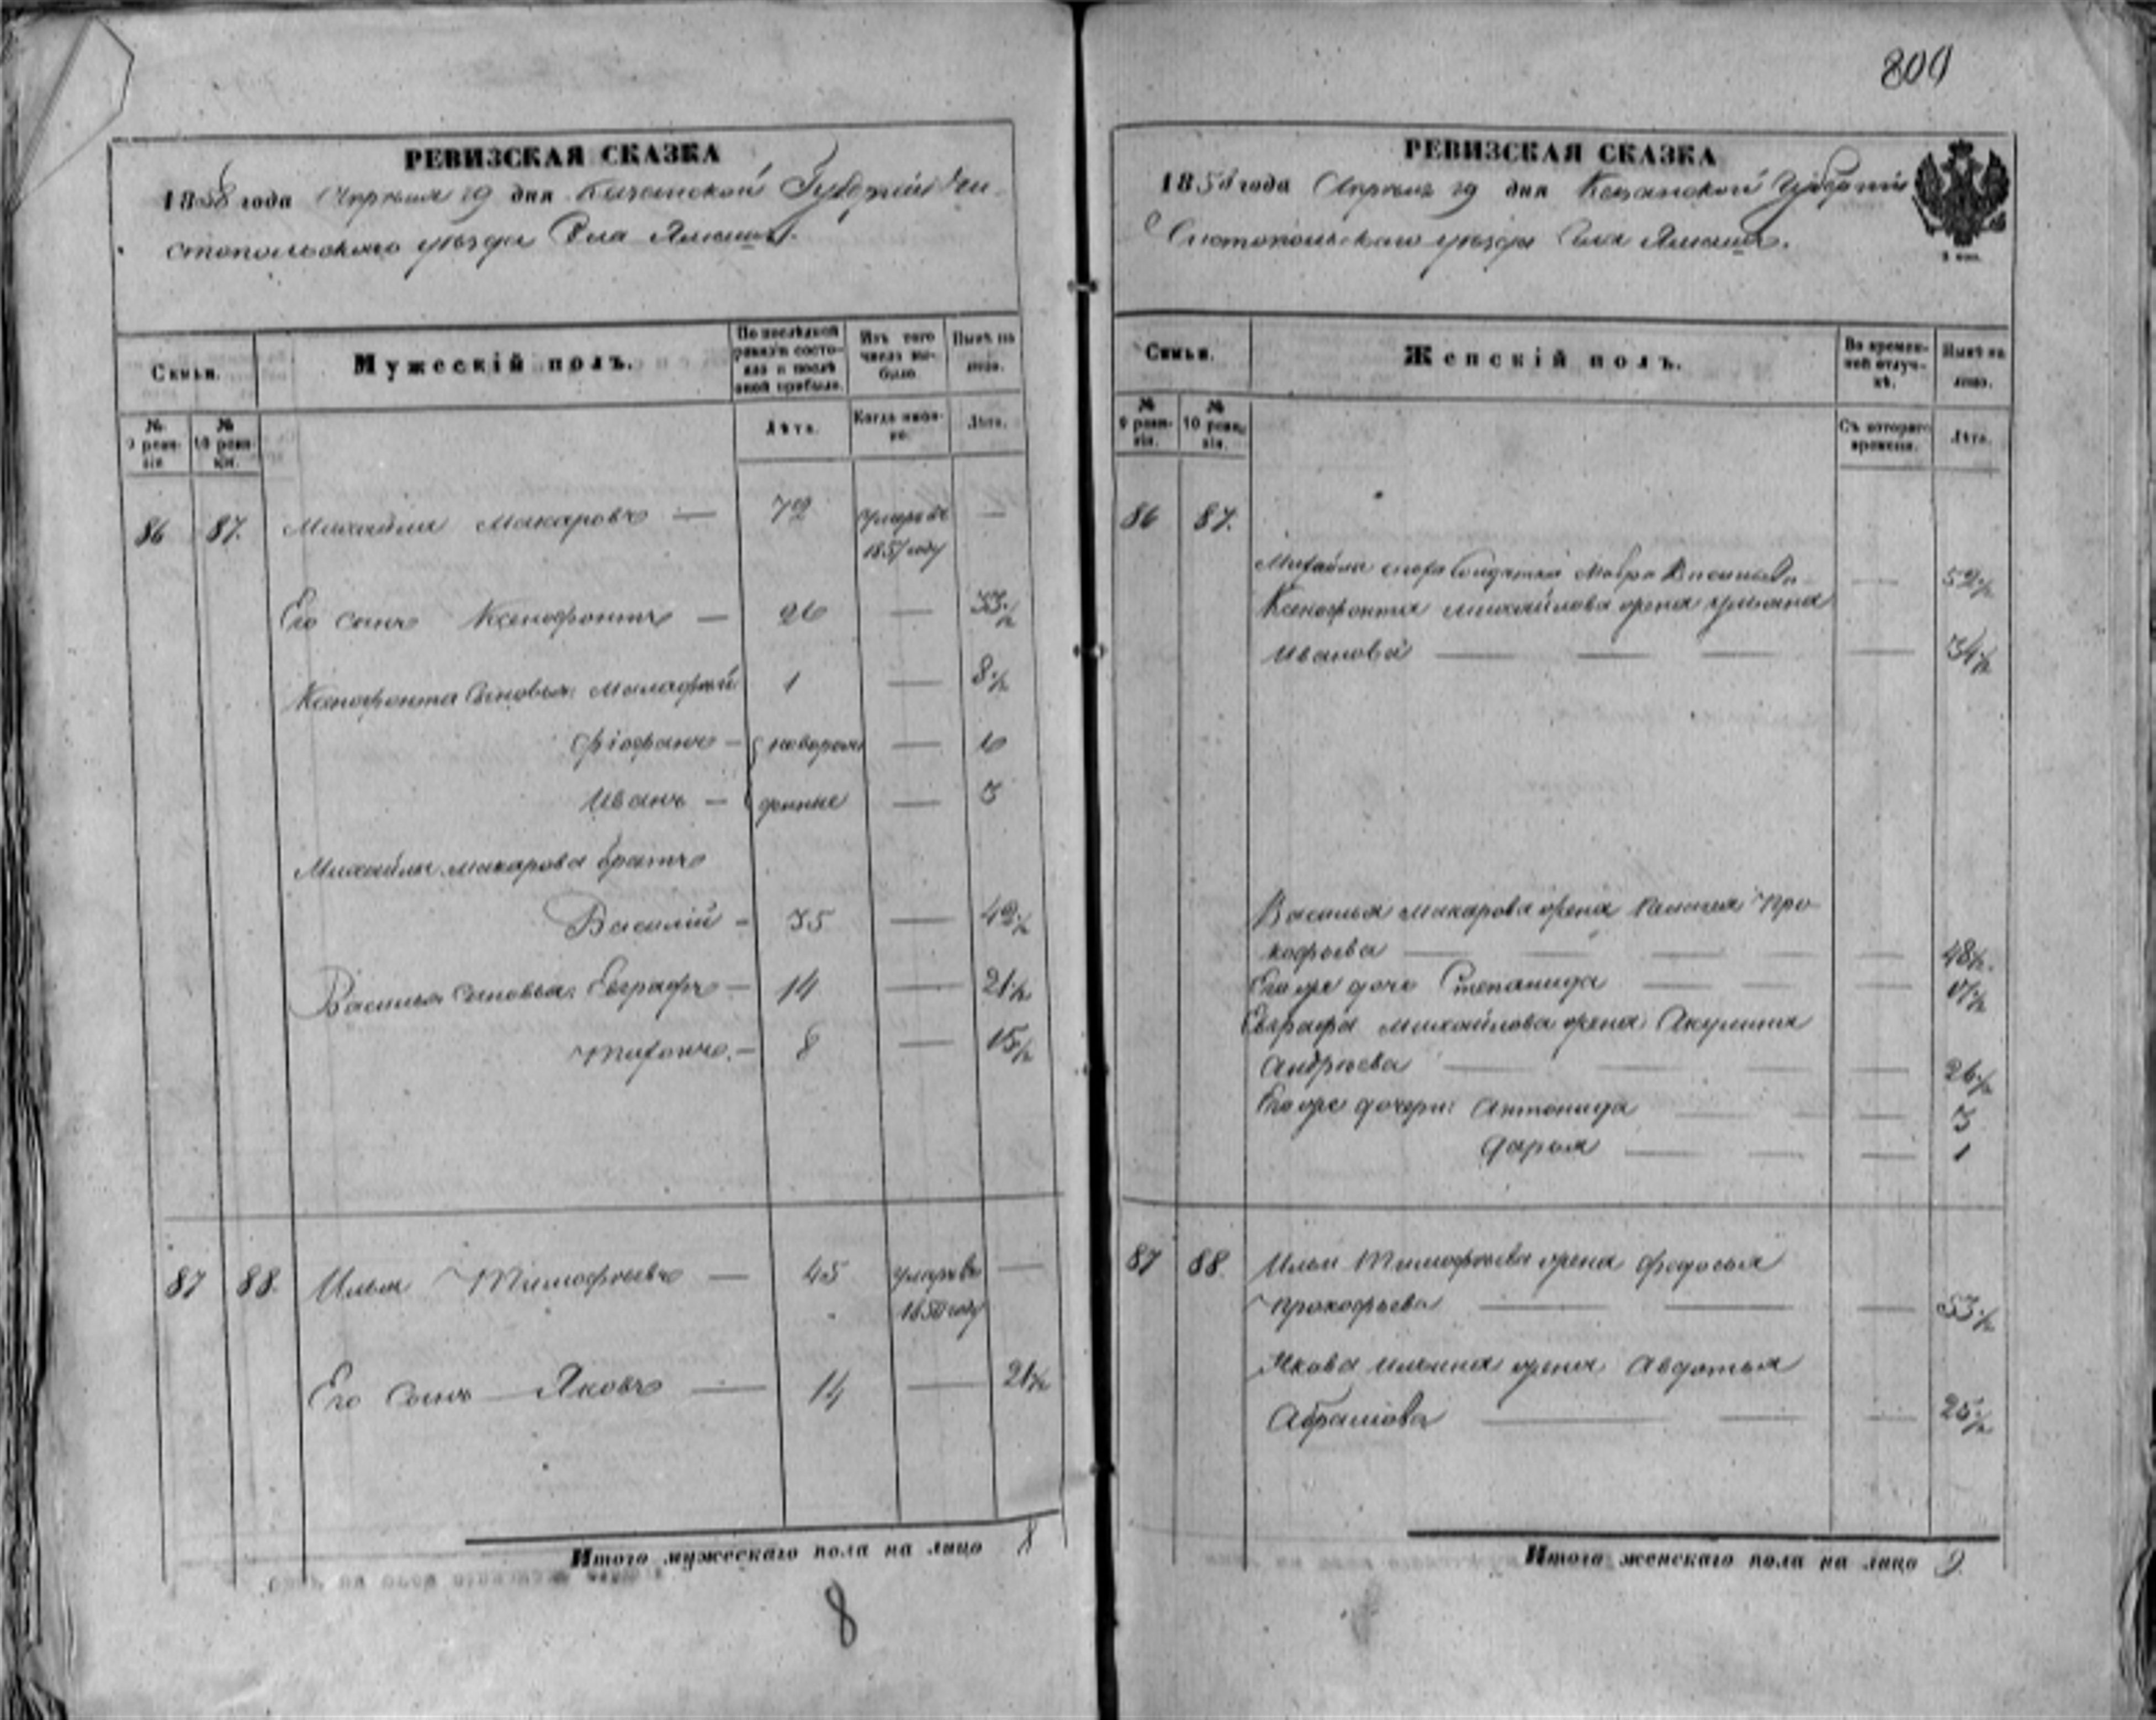 809
РЕВИЗСКАЯ СКАЗКА
1858 года Апреля 19 дня Казанской Губернии Чи-
стопольского уезда Села
Семьи.
Мужескій полъ.
По послѣдней ревизіи состояло и послѣ оной прибыло.
Изъ того числа выбыло.
Нынѣ на лицо.
№ 9 ревизіи.
№ 10 ревизіи.
Лѣта.
Когда именно.
Лѣта.
86 87. Михайла Макаровъ — 72 умеръ въ —
1857 году
Его сынъ Ксенофонтъ — 26 — 33 1/2
Ксенофонта сыновья: Малафей 1 — 8 1/2
Фіофанъ — новорож — 6
Иванъ — денные — 3
Михайлы Макарова братъ
Василій — 35 — 42 1/2
Василья сыновья: Евграфъ — 14 — 21 1/2
Тихонъ. — 8 — 15 1/2
87 88. Илья Тимофеевъ — 45 умеръ въ —
1850 году
Его сынъ — Яковъ — 14 — 21 1/2
Итого мужескаго пола на лицо 8
8
РЕВИЗСКАЯ СКАЗКА
1858 года Апреля 19 дня Казанской Губерніи
Чистопольскаго уезда Села
Семьи.
Женскій полъ.
Во временной отлучкѣ.
Нынѣ на лицо.
№ 9 ревизіи.
№ 10 ревизіи.
Съ котораго времени.
Лѣта.
86 87.
Михайлы сноха Солдатка Мавра Васильева — 52 1/2
Ксенофонта Михайлова жена Ульяна
Иванова — — — — 34 1/2
Василья Макарова жена Пелагея Про-
кофьева — — — — — 48 1/2
Его же дочь Степанида — — — 17 1/2
Евграфа Михайлова жена Акулина
Андреева — — — 26 1/2
Его же дочери: Антонида — — — 3
Дарья — — — 1
87 88. Ильи Тимофеева жена Федосья
Прокофьева — — — 53 1/2
Якова Ильина жена Авдотья
Абрамова — — — 25 1/2
Итого женскаго пола на лицо 9